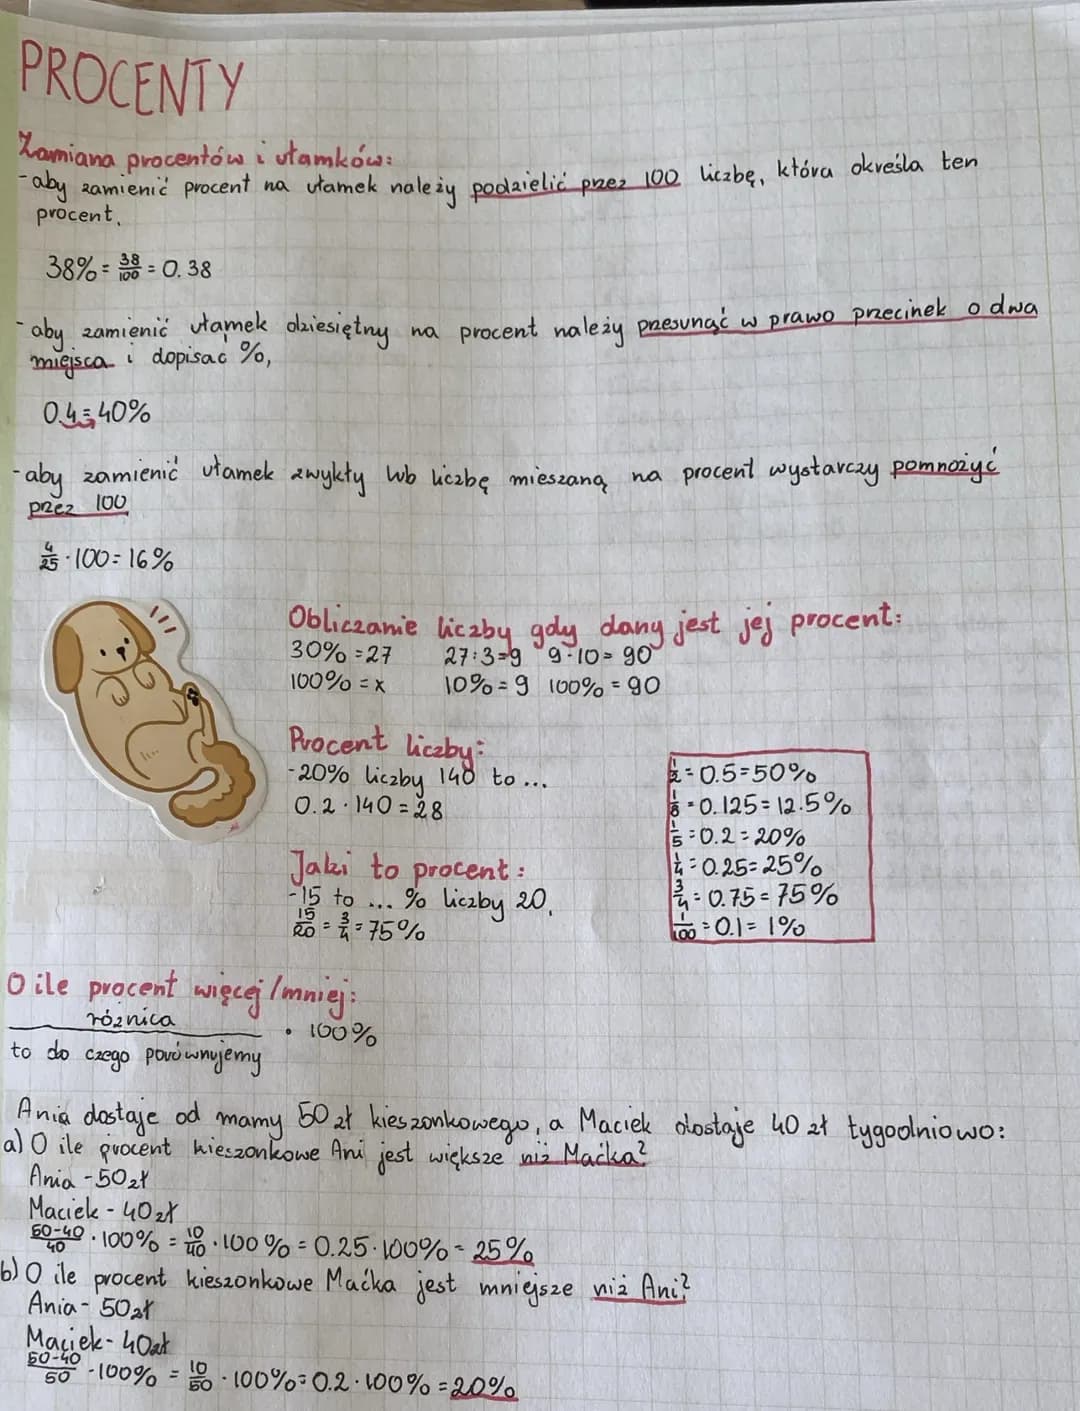 PROCENTY
Zamiana procentów i ułamków:
- aby zamienić procent na ułamek należy podzielić przez 100 liczbę, która określa ten
procent,
38% = 38/100 = 0.38
- aby zamienić ułamek dziesiętny na procent należy przesunąć w prawo przecinek o dwa
miejsca i dopisać %,
0.4 = 40%
- aby zamienić ułamek zwykły lub liczbę mieszaną na procent wystarczy pomnożyć
przez 100
4/25 · 100 = 16%
Obliczanie liczby gdy dany jest jej procent:
30% = 27 27:3=9 9·10=90
100% = x 10% = 9 100% = 90
Procent liczby:
- 20% liczby 140 to ...
0.2 · 140 = 28
Jaki to procent:
- 15 to ... % liczby 20.
15/20 = 3/4 = 75%
1/2 = 0.5 = 50%
1/8 = 0.125 = 12.5%
1/5 = 0.2 = 20%
1/4 = 0.25 = 25%
3/4 = 0.75 = 75%
1/100 = 0.1 = 1%
O ile procent więcej/mniej:
różnica
· 100%
to do czego porównujemy
Ania dostaje od mamy 50 zł kieszonkowego, a Maciek dostaje 40 zł tygodniowo:
a) O ile procent kieszonkowe Ani jest większe niż Maćka?
Ania - 50zł
Maciek - 40zł
50-40/40 · 100% = 10/40 · 100% = 0.25 · 100% = 25%
b) O ile procent kieszonkowe Maćka jest mniejsze niż Ani?
Ania - 50zł
Maciek - 40zł
50-40/50 · 100% = 10/50 · 100% = 0.2 · 100% = 20%